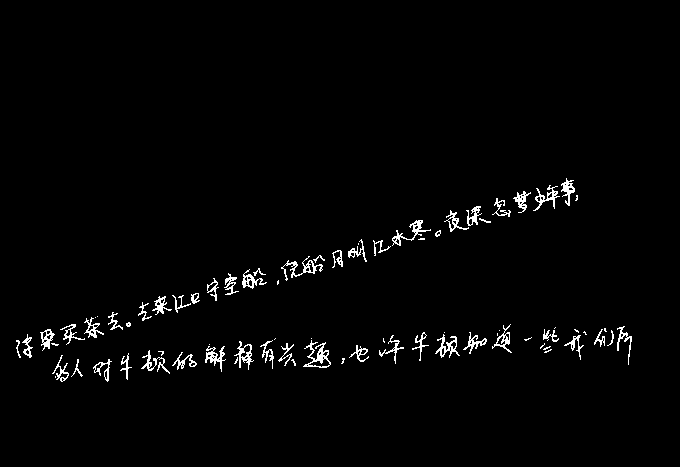 浮梁买茶去。去来江口守空船,绕船月明江水寒。夜深忽梦少年事,
的人对牛顿的解释有兴趣,也许牛顿知道一些我们所